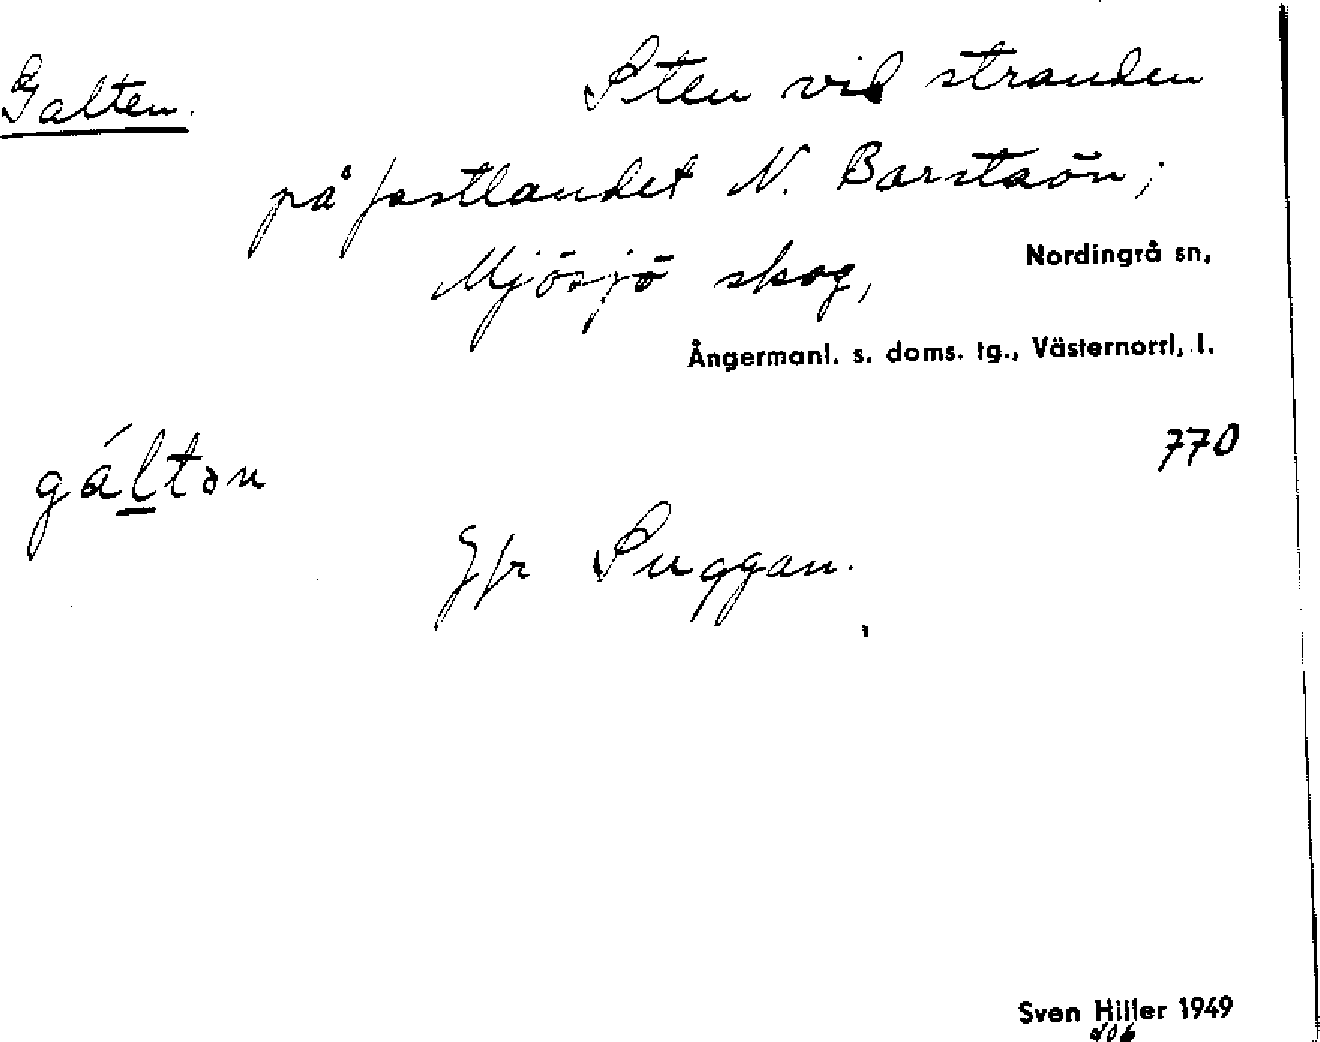 Galten.
Sten vid stranden
på fastlandet N. Barstaön;
Mjösjö skog,
Nordingrå sn,
Ångermanl. s. doms. tg., Västernorrl, l.
770
gáltən
Jfr Suggan.
Sven Hiller 1949